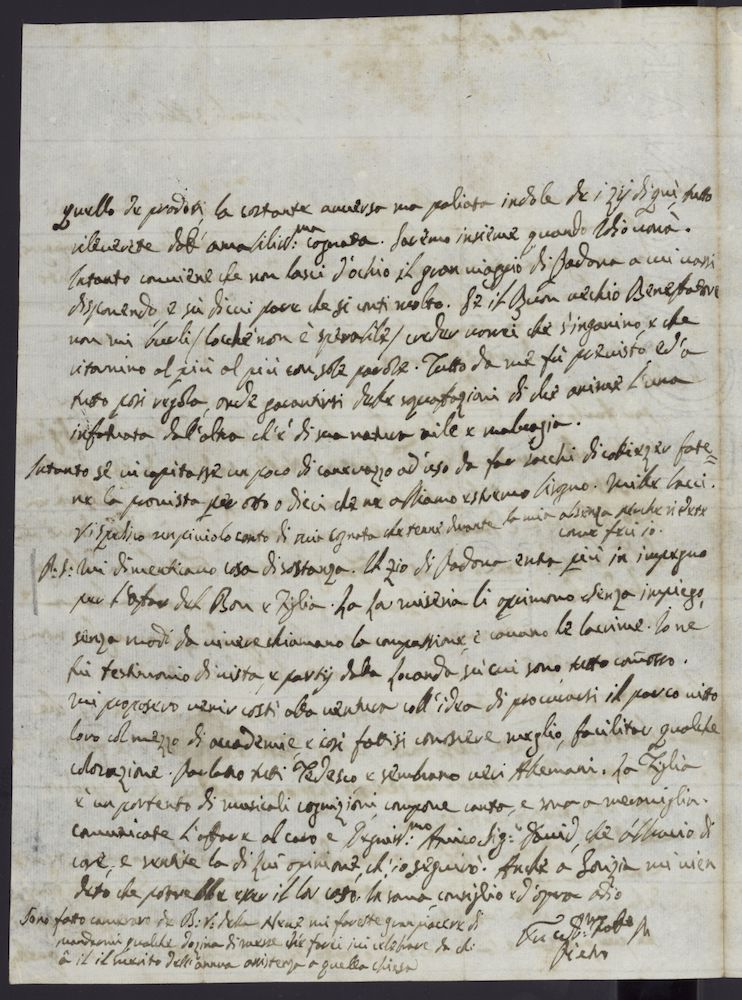 Quello che produsi, la costante avversa ma paliata indole de i zij di quì, tutto
rileverete dall' amabiliss:ma cognata. Saremo insieme quando Iddio vorrà.
Intanto conviene che non lasci d'ochio il gran viaggio di Padova a cui vassi
disponendo e sù di cui pare che si conti molto. Se il Buon vechio Benefatore
non mi burli / locchè non è sperabile / creder vorrei che s'inganino, e che
vi tamino al più al più con sole parole. Tutto da me fù previsto ed a
tutto posi regola, onde garantirsi dalle di due anime l'una
infatuata dall'altra ch'è di sua natura vile e malvagia.
Intanto se vi capitasse un poco di canevazzo ad uso da far sacchi di fate=
ne la provista per otto o dieci che ne abbiamo estremo bisogno. Mille bacci.
Vi spedisco un piciolo conto di mia cognata che tenne durante la mia absenza perche vediate
come feci io.
P:S: Mi dimenticavo cosa di sostanza. Il zio di Padova entra più in impegno
per l'afar del Bon e Figlia. La lor miseria li oprimono senza impiego,
senza modi da vivere chiamano la compassione, e cavano le lacrime. Io ne
fui testimonio di vista, e partij dalla Locanda sù cui sono tutto comosso.
Mi proposero venir costì alla ventura coll'idea di procurarsi il parco vitto
loro col mezzo di accademie, e così fattisi conoscere meglio, facilitar qualche
colocazione. Parlano tutti Tedesco e sembrano veri Allemani. La Figlia
è un portento di musicali cognizioni, compone canta, e sona a meraviglia.
Comunicate l'affare al caro e Pregiatiss:mo Amico Sig:r David, che abbracio di
core, e sentite la di lui opinione, ch'io seguirò. Anche a Gorizia mi vien
detto che potrebbe esser il lor caso. In soma consiglio ed opera adio
Sono fatto cameraro de B: V: della Neve mi fareste gran piacere di
mandarmi qualche dozina di messe che farei ivi celebrare da chi
à il merito dell'annua assistenza a quella chiesa
Pietro